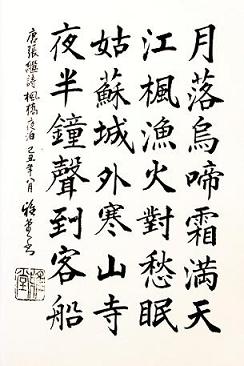 月落烏啼霜滿天
江楓漁火對愁眠
姑蘇城外寒山寺
夜半鐘聲到客船
唐張繼詩楓橋夜泊己丑年八月